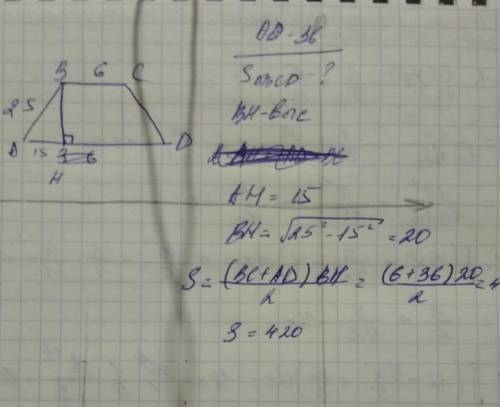 AD - 36
S ABCD - ?
BH - выс
AH = 15
BH = √25² - 15² = 20
S = (BC + AD) BH / 2 = (6 + 36) 20 / 2 = 4
S = 420
B 6 C
25
A 15 D
36
H